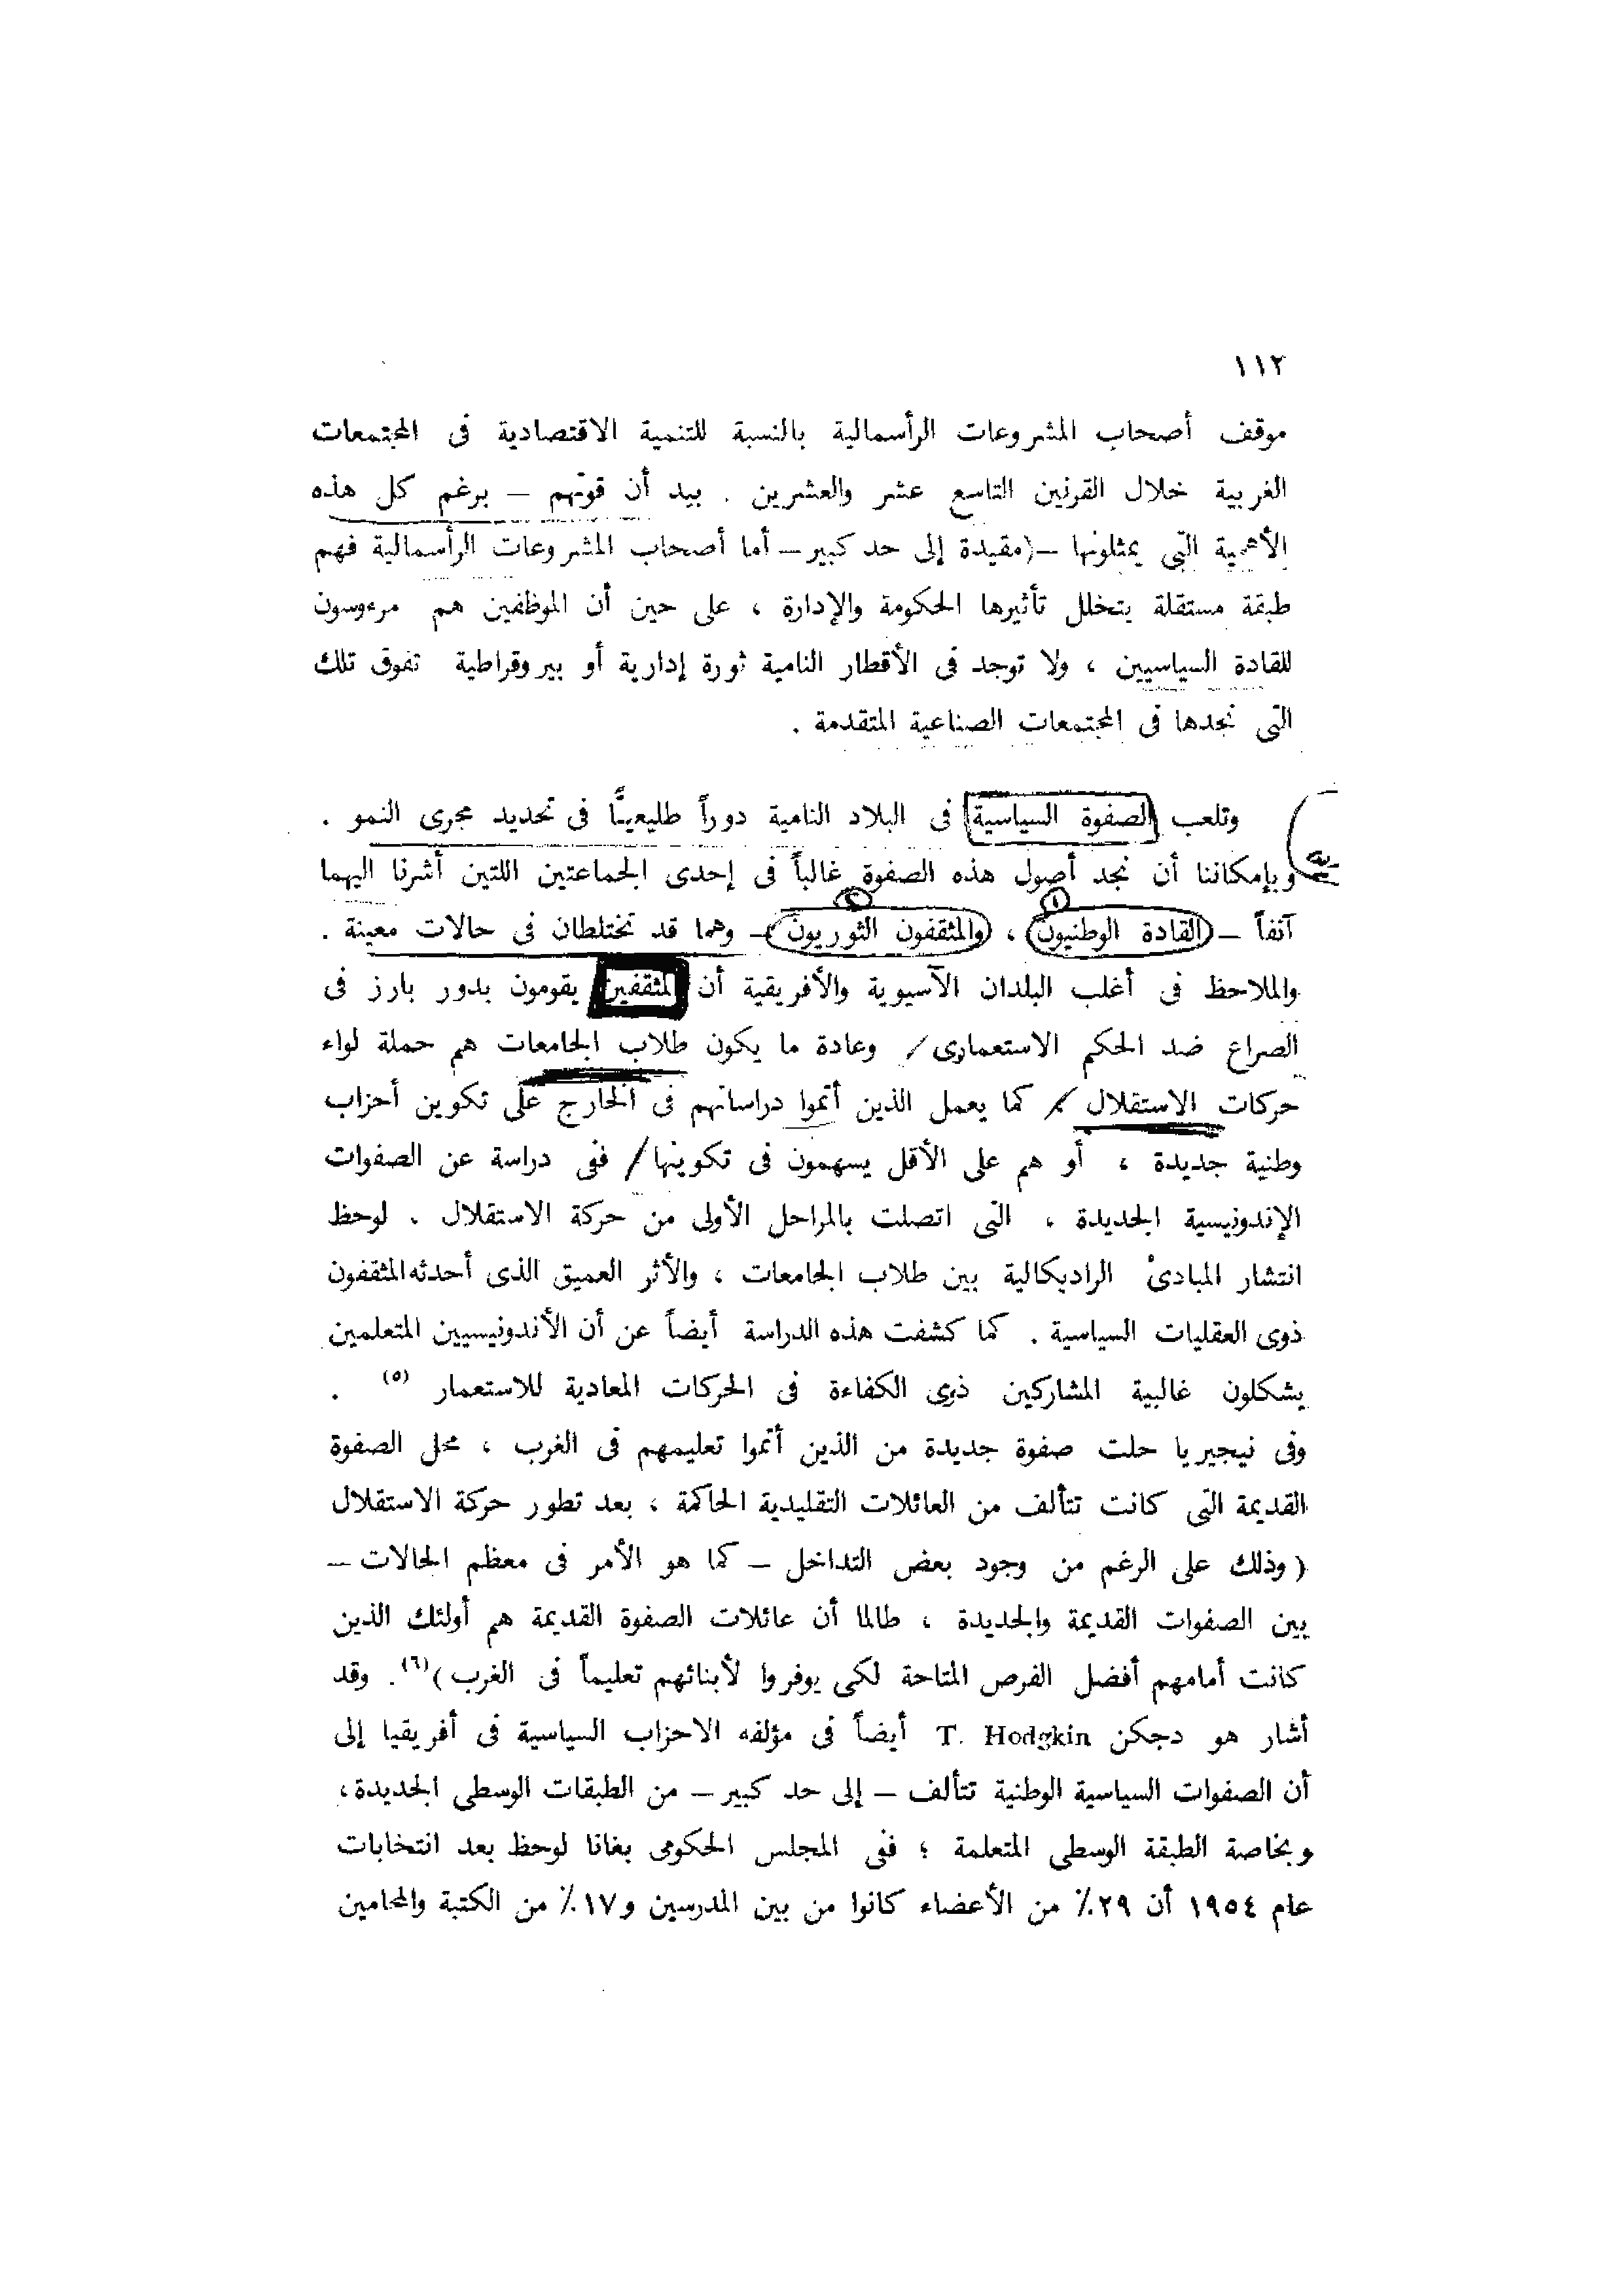 ١١٢
موقف أصحاب المشروعات الرأسمالية بالنسبة للتنمية الاقتصادية فى المجتمعات
الغربية خلال القرنين التاسع عشر والعشرين . بيد أن قوتهم – برغم كل هذه
الأهمية التى يمثلونها –(مقيدة إلى حد كبير – أما أصحاب المشروعات الرأسمالية فهم
طبقة مستقلة يتخلل تأثيرها الحكومة والإدارة ، على حين أن الموظفين هم مرءوسون
للقادة السياسيين ، ولا توجد فى الأقطار النامية ثورة إدارية أو بيروقراطية تفوق تلك
التى نجدها فى المجتمعات الصناعية المتقدمة .
وتلعب الصفوة السياسية فى البلاد النامية دوراً طليعيًّا فى تحديد مجرى النمو .
وبإمكاننا أن نجد أصول هذه الصفوة غالباً فى إحدى الجماعتين اللتين أشرنا اليهما
آنفاً – القادة الوطنيون ، والمثقفون الثوريون – وهما قد تختلطان فى حالات معينة .
والملاحظ فى أغلب البلدان الآسيوية والأفريقية أن المثقفين يقومون بدور بارز فى
الصراع ضد الحكم الاستعمارى / وعادة ما يكون طلاب الجامعات هم حملة لواء
حركات الاستقلال / كما يعمل الذين أتموا دراساتهم فى الخارج على تكوين أحزاب
وطنية جديدة ، أو هم على الأقل يسهمون فى تكوينها / ففى دراسة عن الصفوات
الإندونيسية الجديدة ، التى اتصلت بالمراحل الأولى من حركة الاستقلال . لوحظ
انتشار المبادئ الراديكالية بين طلاب الجامعات ، والأثر العميق الذى أحدثه المثقفون
ذوى العقليات السياسية . كما كشفت هذه الدراسة أيضاً عن أن الأندونيسيين المتعلمين
يشكلون غالبية المشاركين ذوى الكفاءة فى الحركات المعادية للاستعمار (٥) .
وفى نيجيريا حلت صفوة جديدة من الذين أتموا تعليمهم فى الغرب ، محل الصفوة
القديمة التى كانت تتألف من العائلات التقليدية الحاكمة ، بعد تطور حركة الاستقلال
( وذلك على الرغم من وجود بعض التداخل – كما هو الأمر فى معظم الحالات –
بين الصفوات القديمة والجديدة ، طالما أن عائلات الصفوة القديمة هم أولئك الذين
كانت أمامهم أفضل الفرص المتاحة لكى يوفروا لأبنائهم تعليماً فى الغرب )(٦). وقد
أشار هو دجكن T. Hodgkin أيضاً فى مؤلفه الاحزاب السياسية فى أفريقيا إلى
أن الصفوات السياسية الوطنية تتألف – إلى حد كبير – من الطبقات الوسطى الجديدة،
وبخاصة الطبقة الوسطى المتعلمة ؛ ففى المجلس الحكومى بغانا لوحظ بعد انتخابات
عام ١٩٥٤ أن ٢٩٪ من الأعضاء كانوا من بين المدرسين و١٧٪ من الكتبة والمحامين